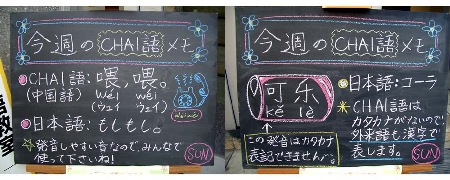 今週のCHAI語メモ
●CHAI語:喂,喂。
(中国語) wéi wéi
(ウェイ) (ウェイ)
●日本語:もしもし。
☆発音しやすい音なので、みんなで
使って下さいね!
SUN
今週のCHAI語メモ
可乐
kě lè
↑
この発音はカタカナ
表記できません。
●日本語:コーラ
※CHAI語は
カタカナがないので、
外来語も漢字で
表します。
SUN